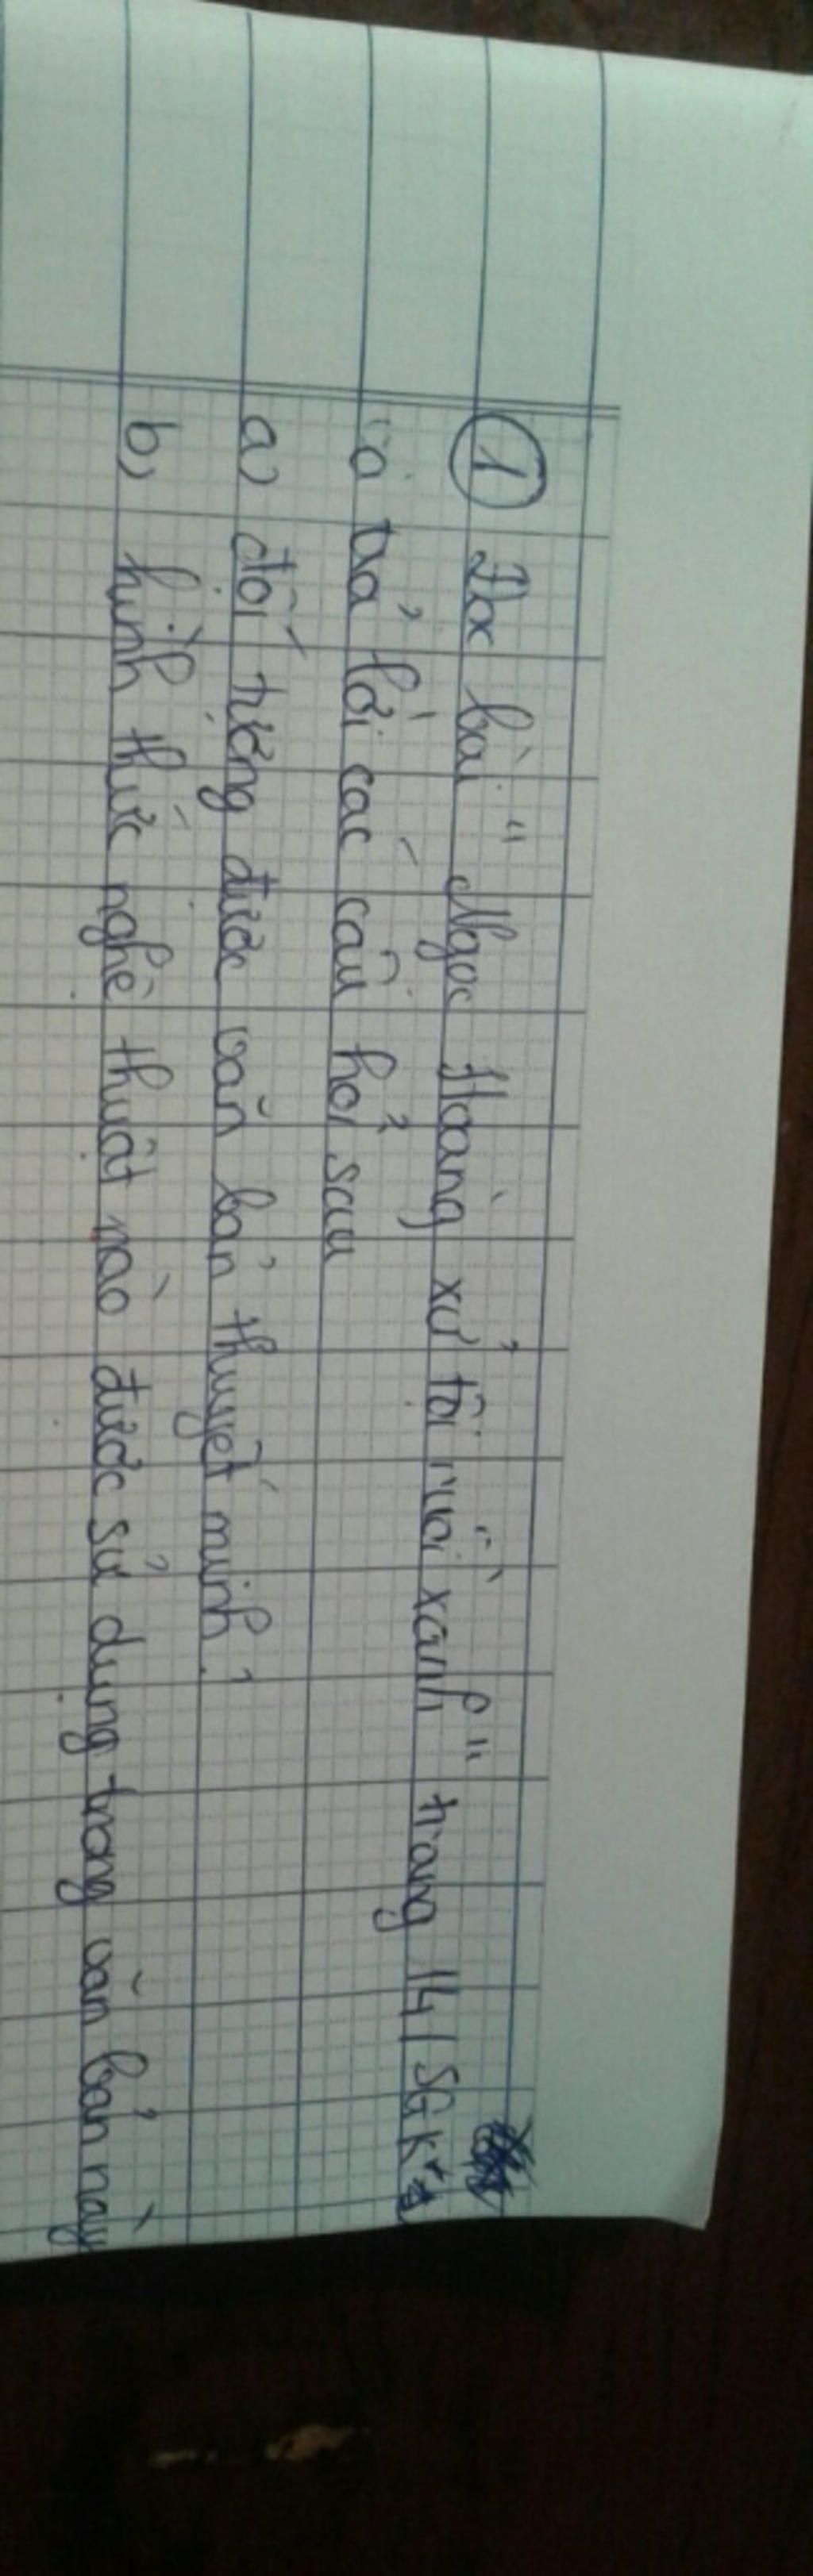 ① Đọc bài "Ngọc Hoàng xử tội ruồi xanh" trang 14 / SGK
và trả lời các câu hỏi sau
a) đối tượng được văn bản thuyết minh?
b) hình thức nghệ thuật nào được sử dụng trong văn bản này